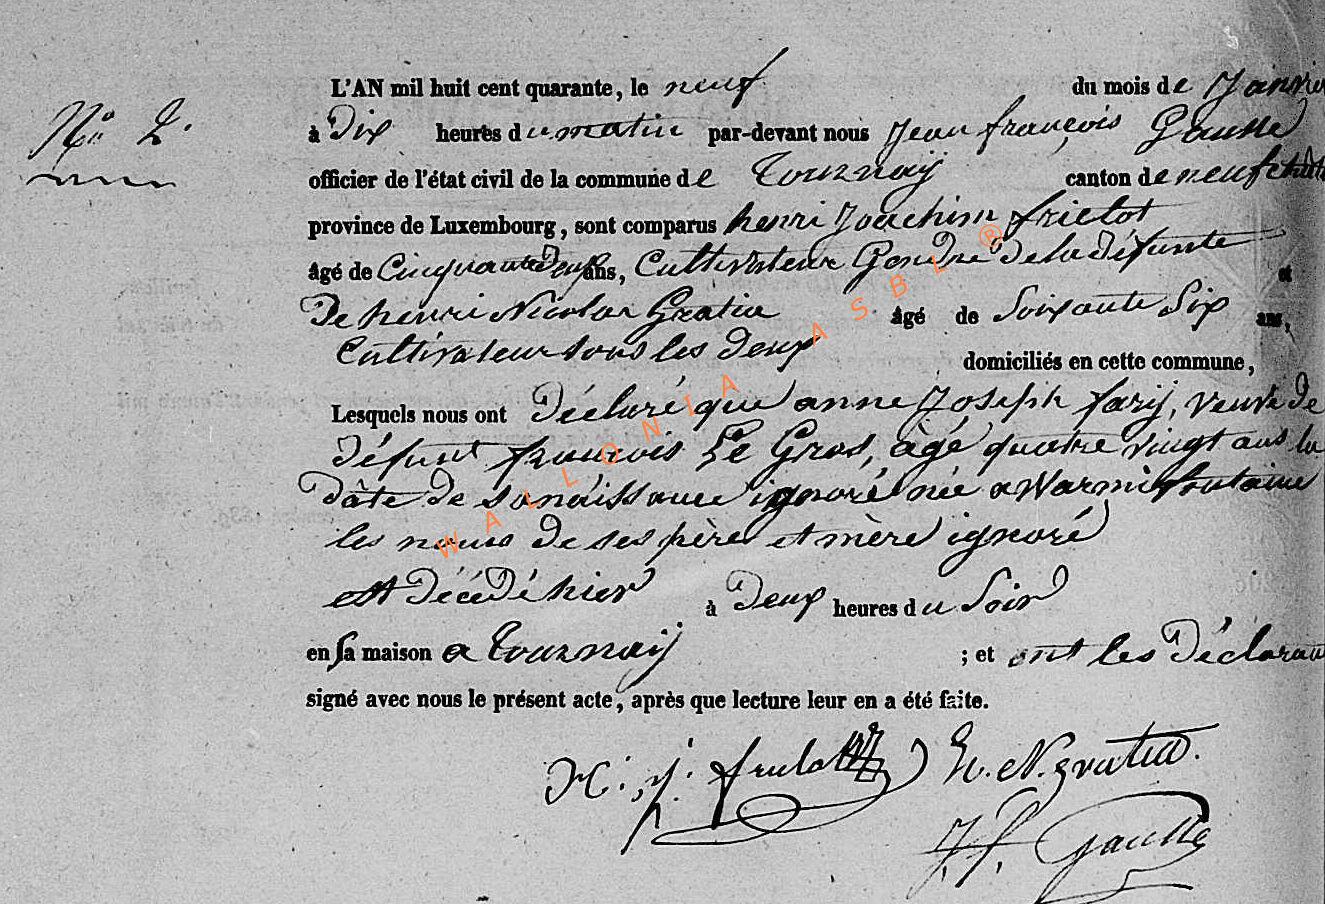 L'AN mil huit cent quarante, le neuf du mois de Janvier
No 2.
à Dix heures du matin par-devant nous Jean françois Gausse
officier de l'état civil de la commune de Tournay canton de neufchât
province de Luxembourg, sont comparus henri Joachim frielot
âgé de Cinquante Deux ans, Cultivateur Gendre De la défunte et
De henri Nicolas Gratia âgé de Soixante Six ans,
Cultivateur tous les Deux domiciliés en cette commune,
Lesquels nous ont Déclaré que anne Joseph fary, veuve de
défunt françois Le Gros, âgé quatre vingt ans la
Dâte de sa naissance ignoré née a Warmifontaine
les noms de ses père et mère ignoré
est Décédé hier à Deux heures du Soir
en sa maison a Tournay ; et ont les Déclarant
signé avec nous le présent acte, après que lecture leur en a été faite.
H. j. frielot h. N. gratia.
J. f. Gausse
WALLONIA ASBL ®